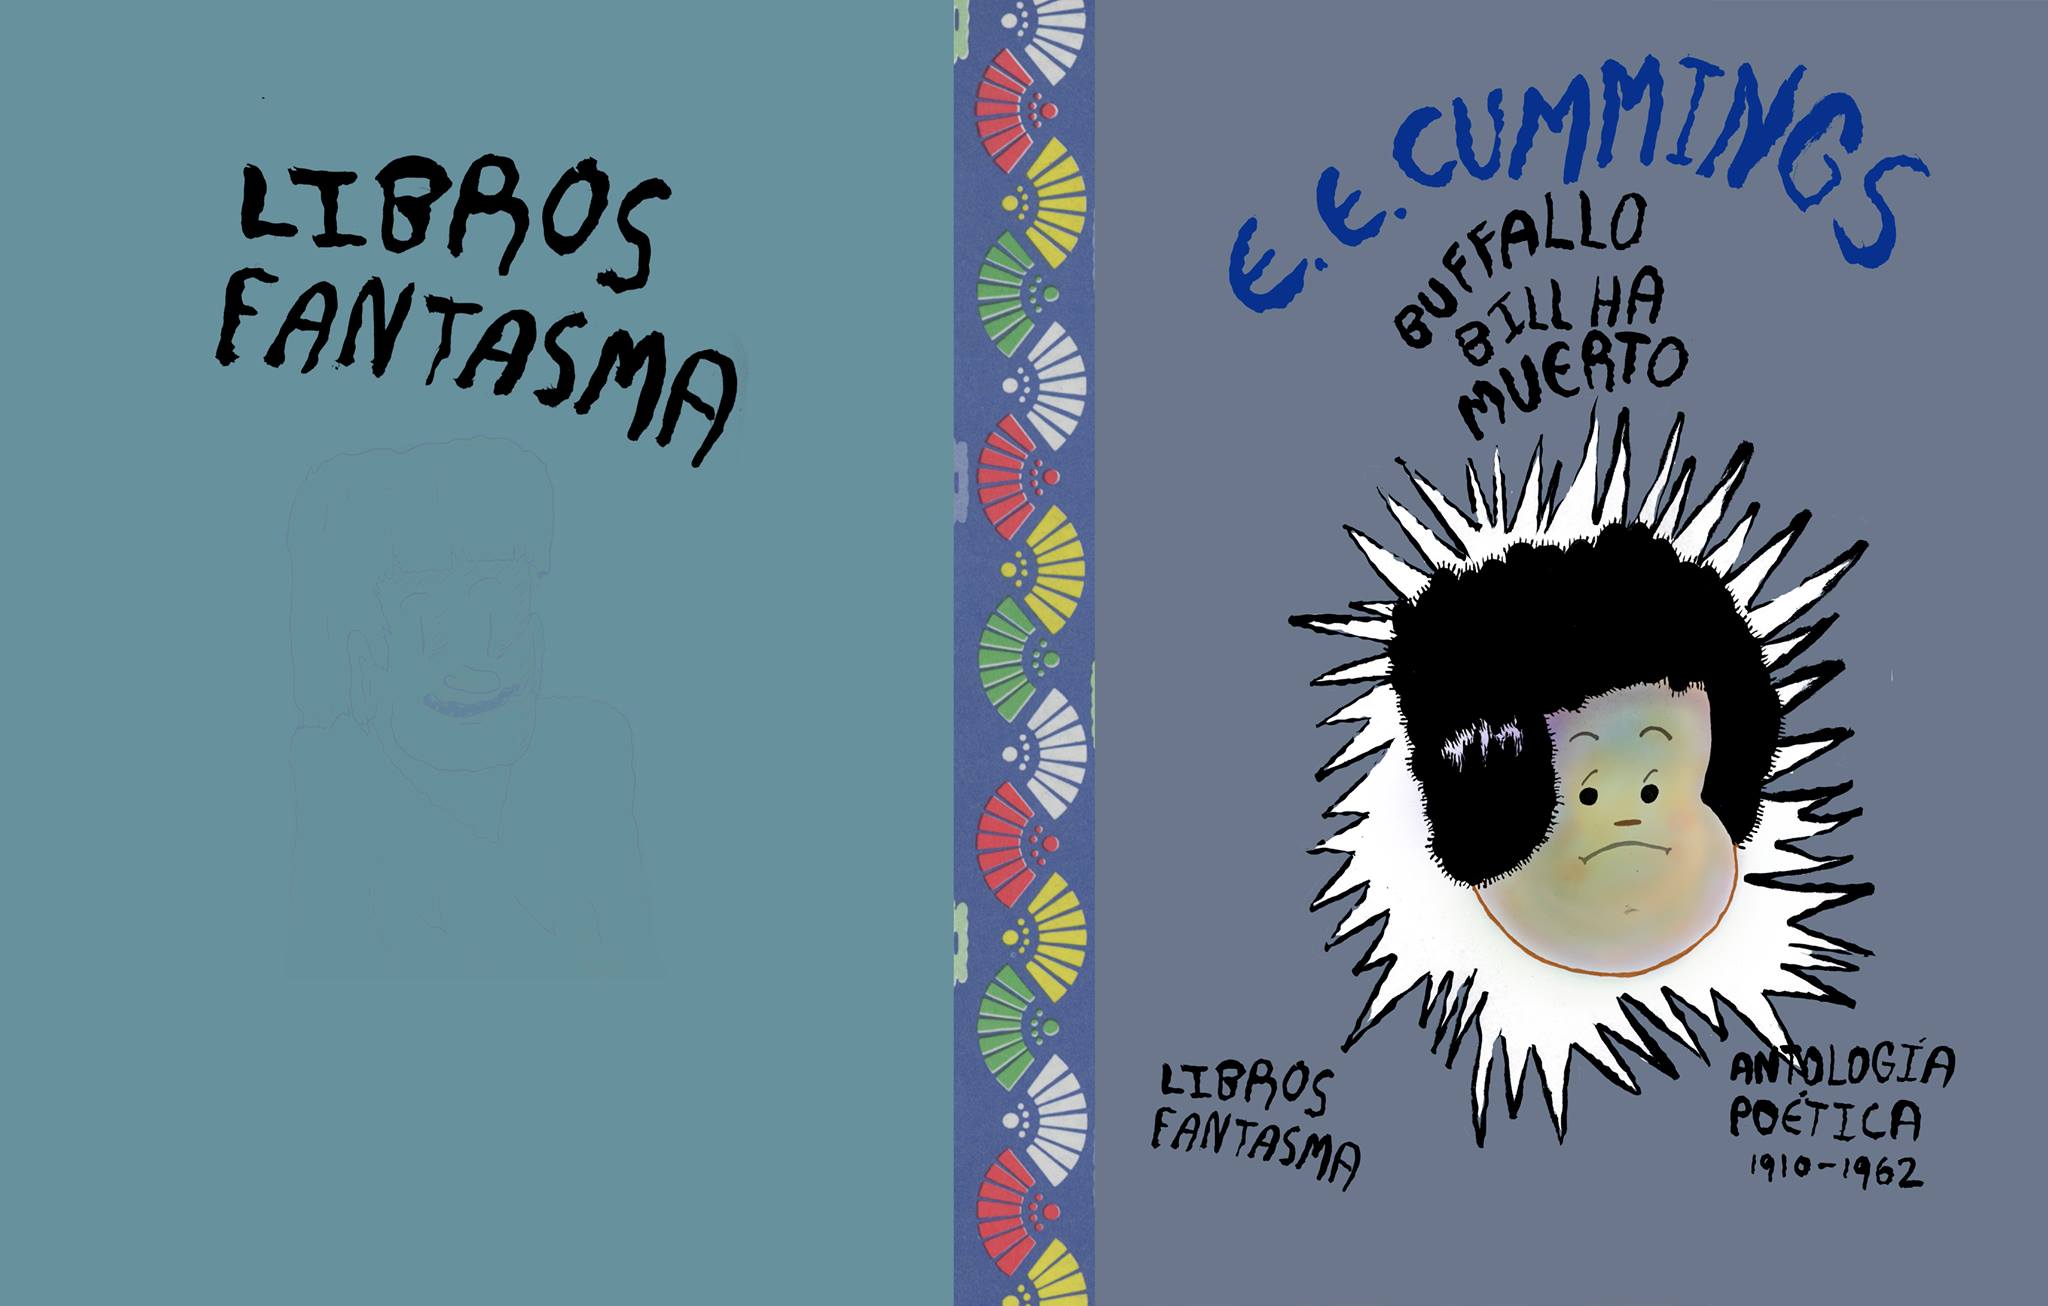 LIBROS
FANTASMA
E.E. CUMMINGS
BUFFALLO
BILL HA
MUERTO
LIBROS
FANTASMA
ANTOLOGÍA
POÉTICA
1910-1962